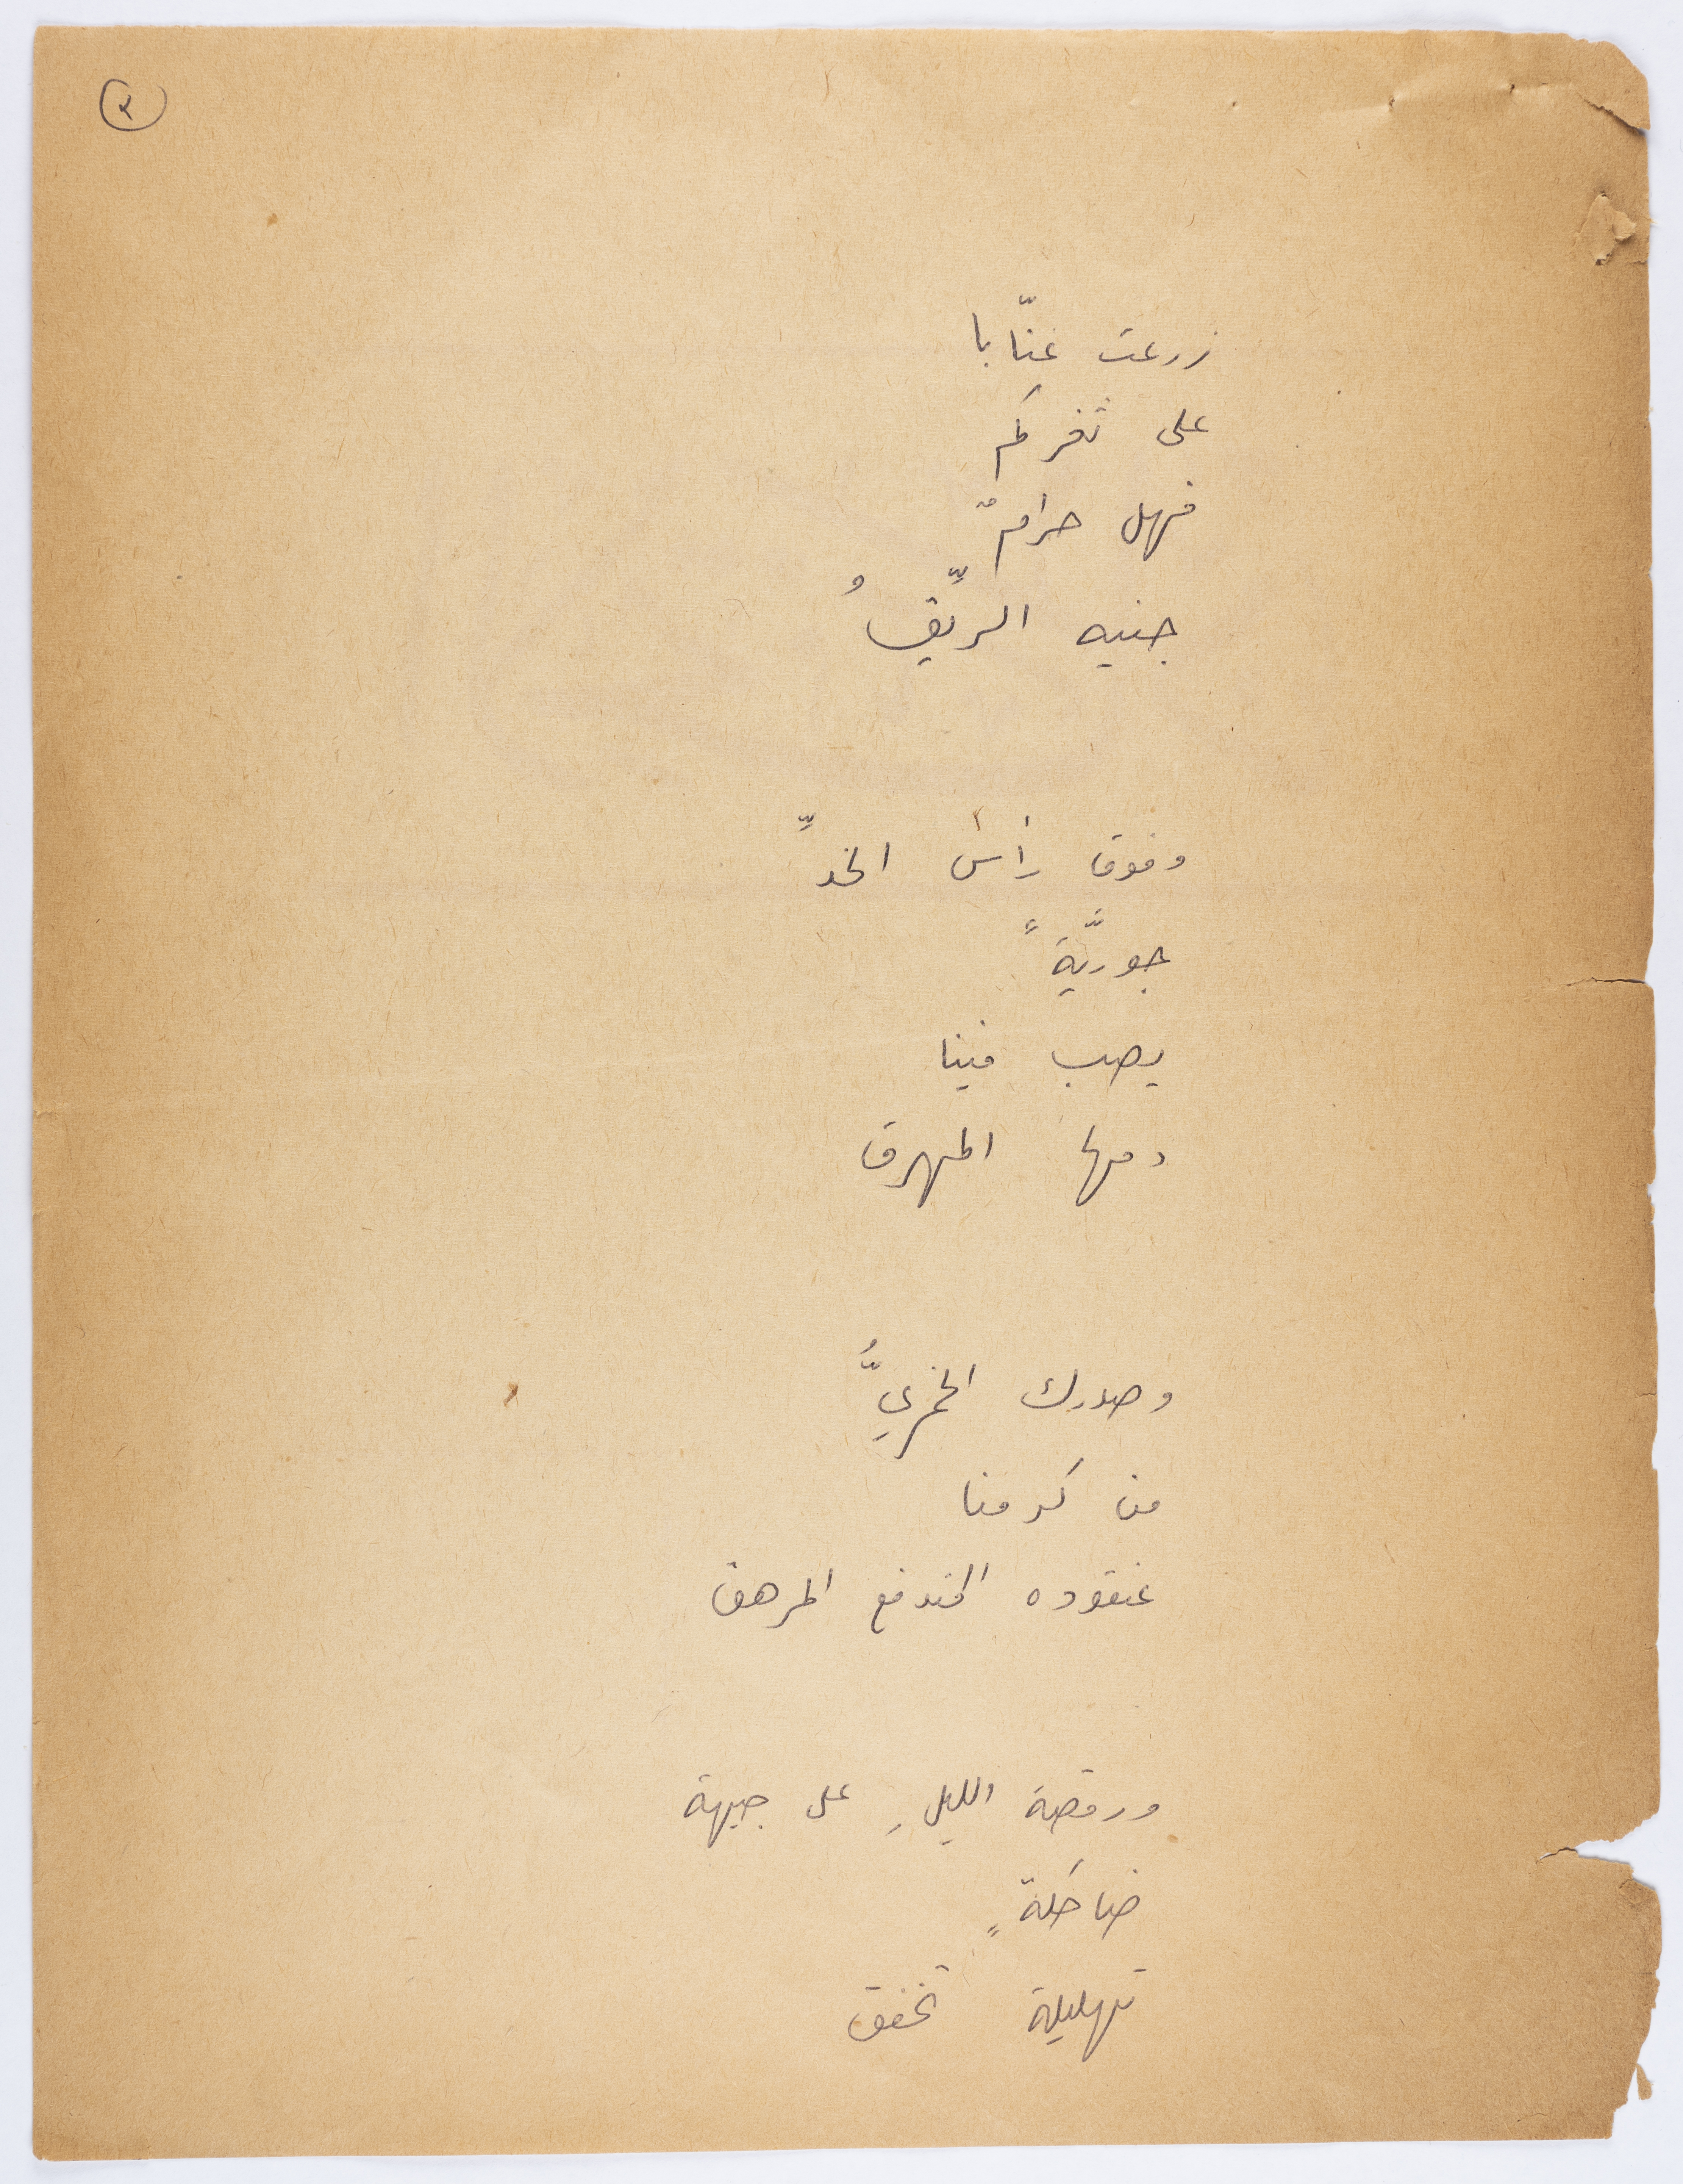 ٣
زرعت عنّابا
على ثغركم
فهل حرامٌ
جنيه الريِّقُ
وفوق رأس الخدِّ
جوريَّةً
يصب فينا
دمها المهرق
وصدرك الخمريُّ
من كرمنا
عنقوده المندفع المرهق
ورقصة الليلِ على جبهة
ضاحكةٍ
تهليلة تخفق